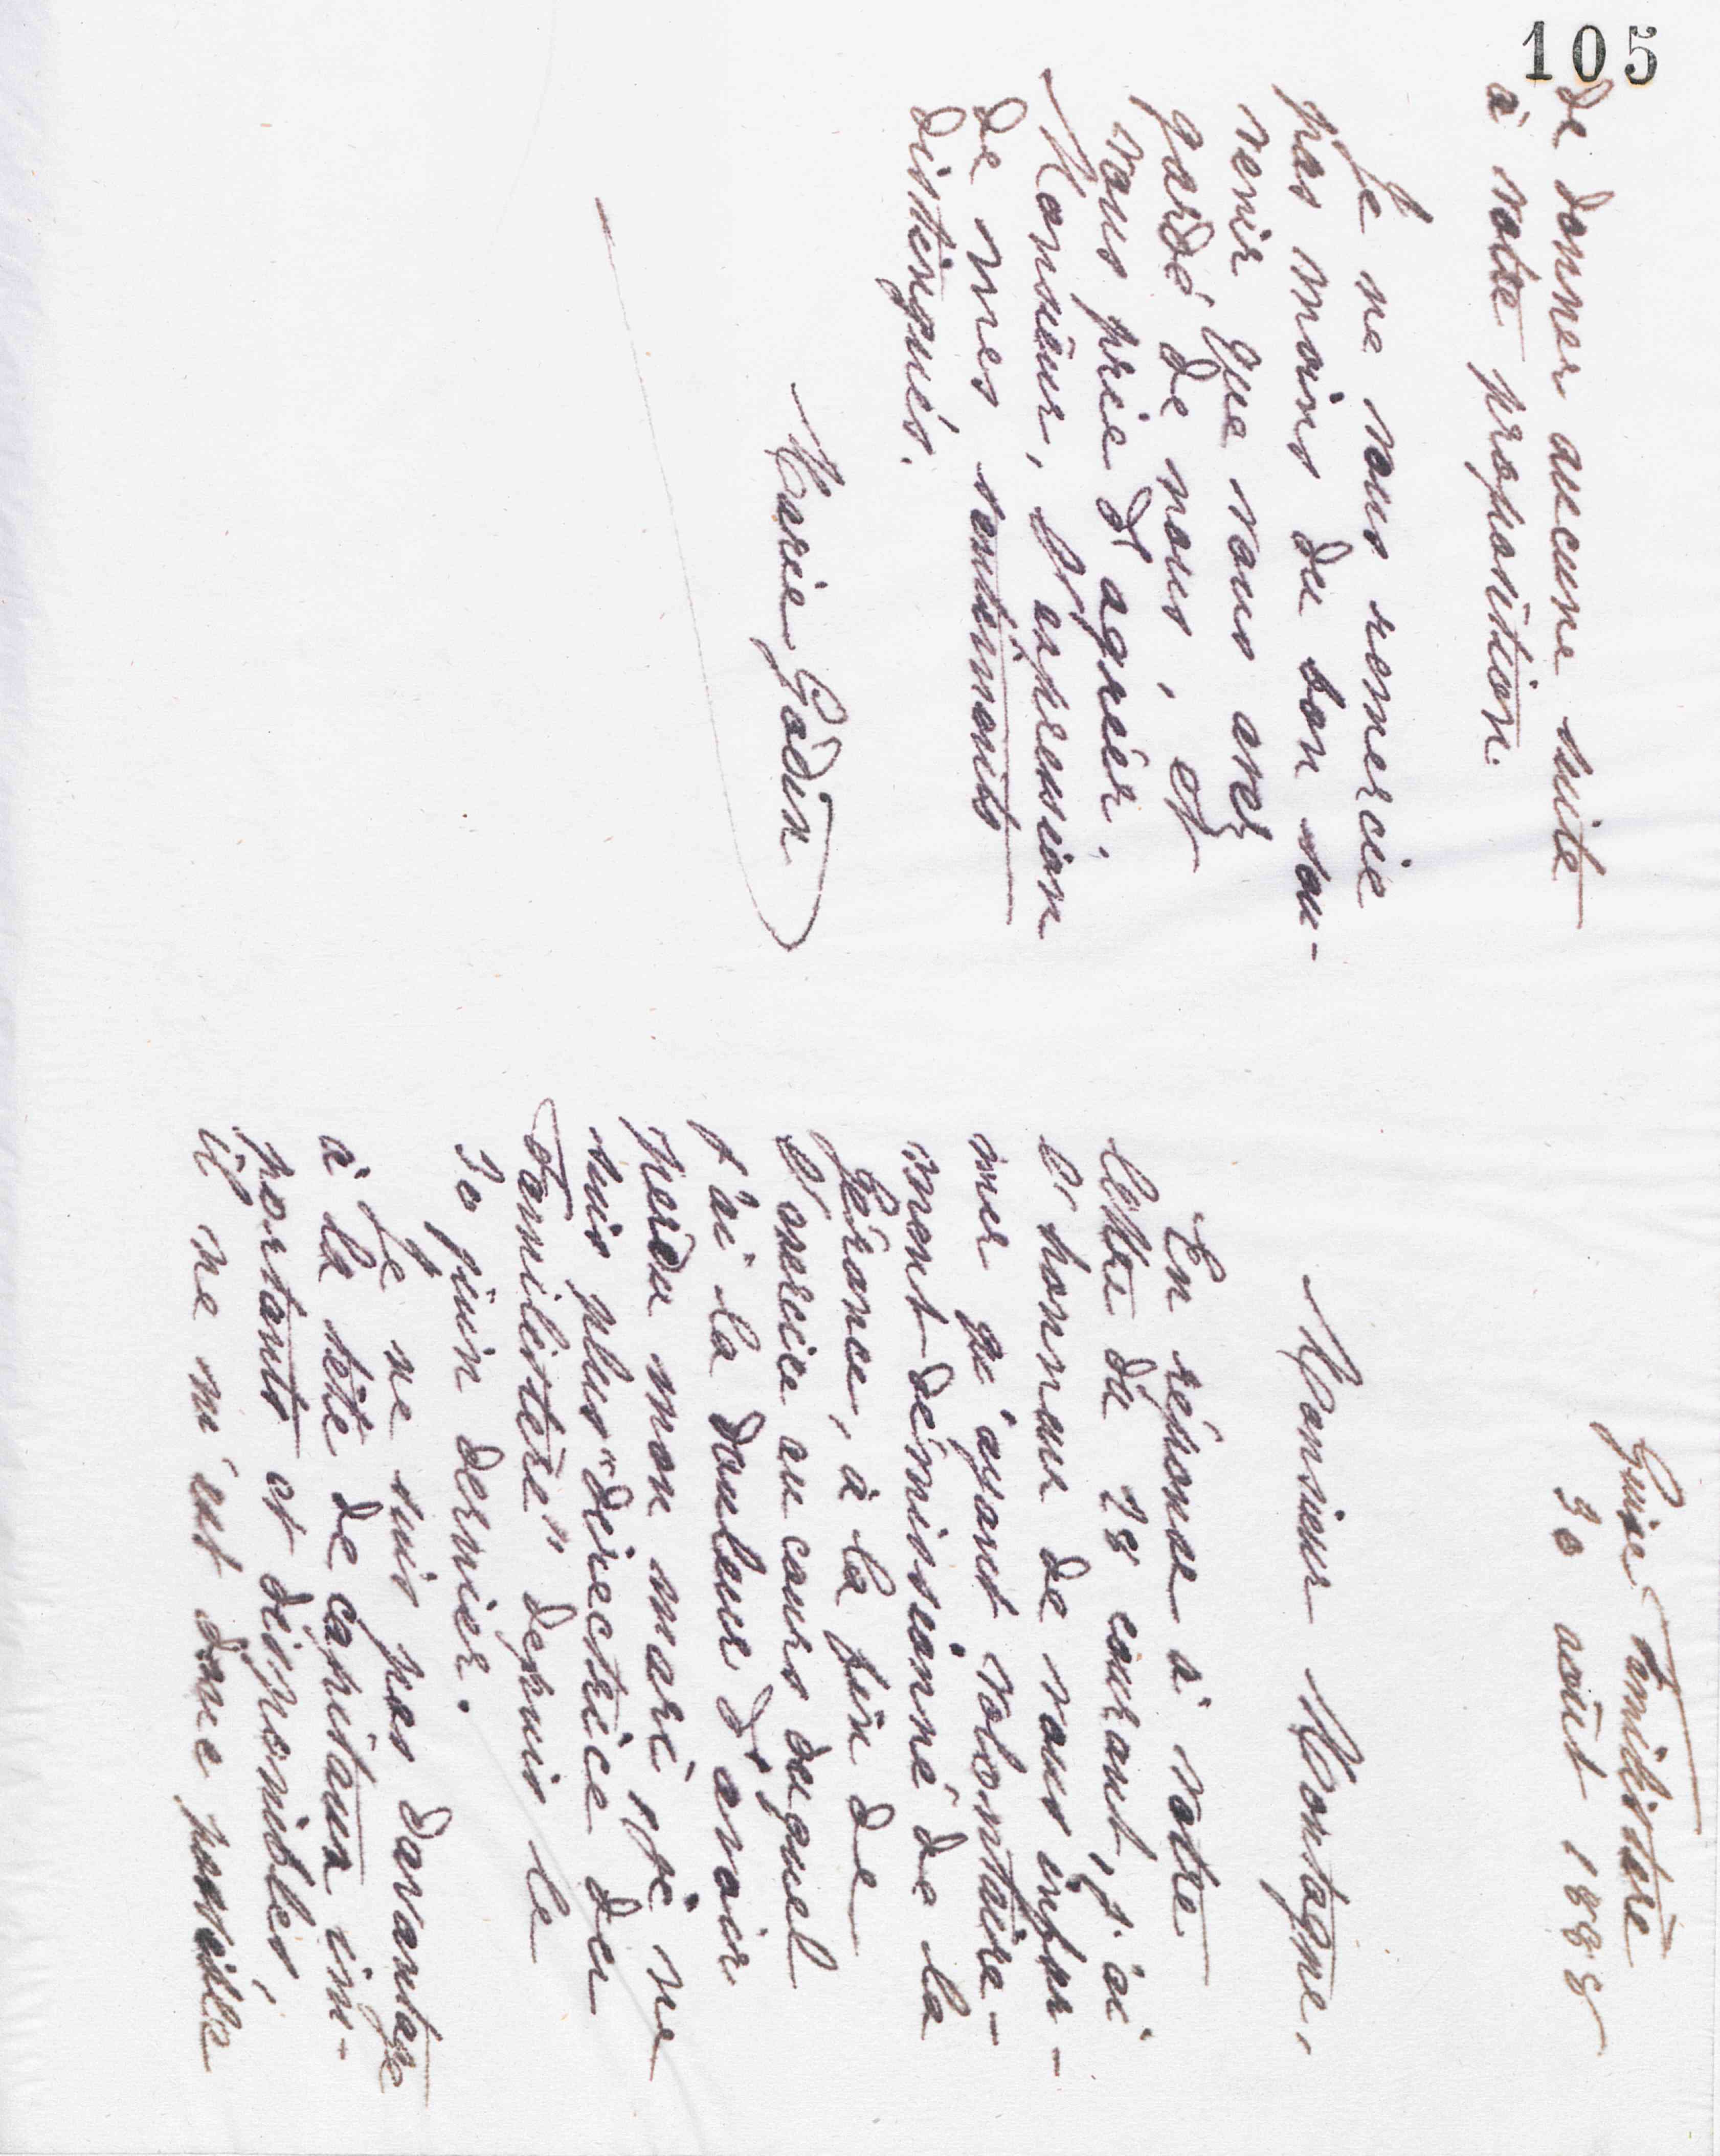 105
Guise Familistère
30 août 1888
Monsieur Montagne,
En réponse à votre
lettre du 28 courant, j'ai
l'honneur de vous infor-
mer qu'ayant volontaire-
ment démissionné de la
Gérance, à la fin de
l'exercice au cours duquel
j'ai la douleur d'avoir
perdu mon mari, je ne
suis plus "directrice du
Familistère" depuis le
30 juin dernier.
Je ne suis pas davantage
à la tête de capitaux im-
portants et disponibles,
il ne m'est donc possible
de donner aucune suite
à votre proposition.
Je ne vous remercie
pas moins du bon sou-
venir que vous avez
gardé de nous, et
vous prie d'agréer,
Monsieur, l'expression
de mes sentiments
distingués.
Marie Godin